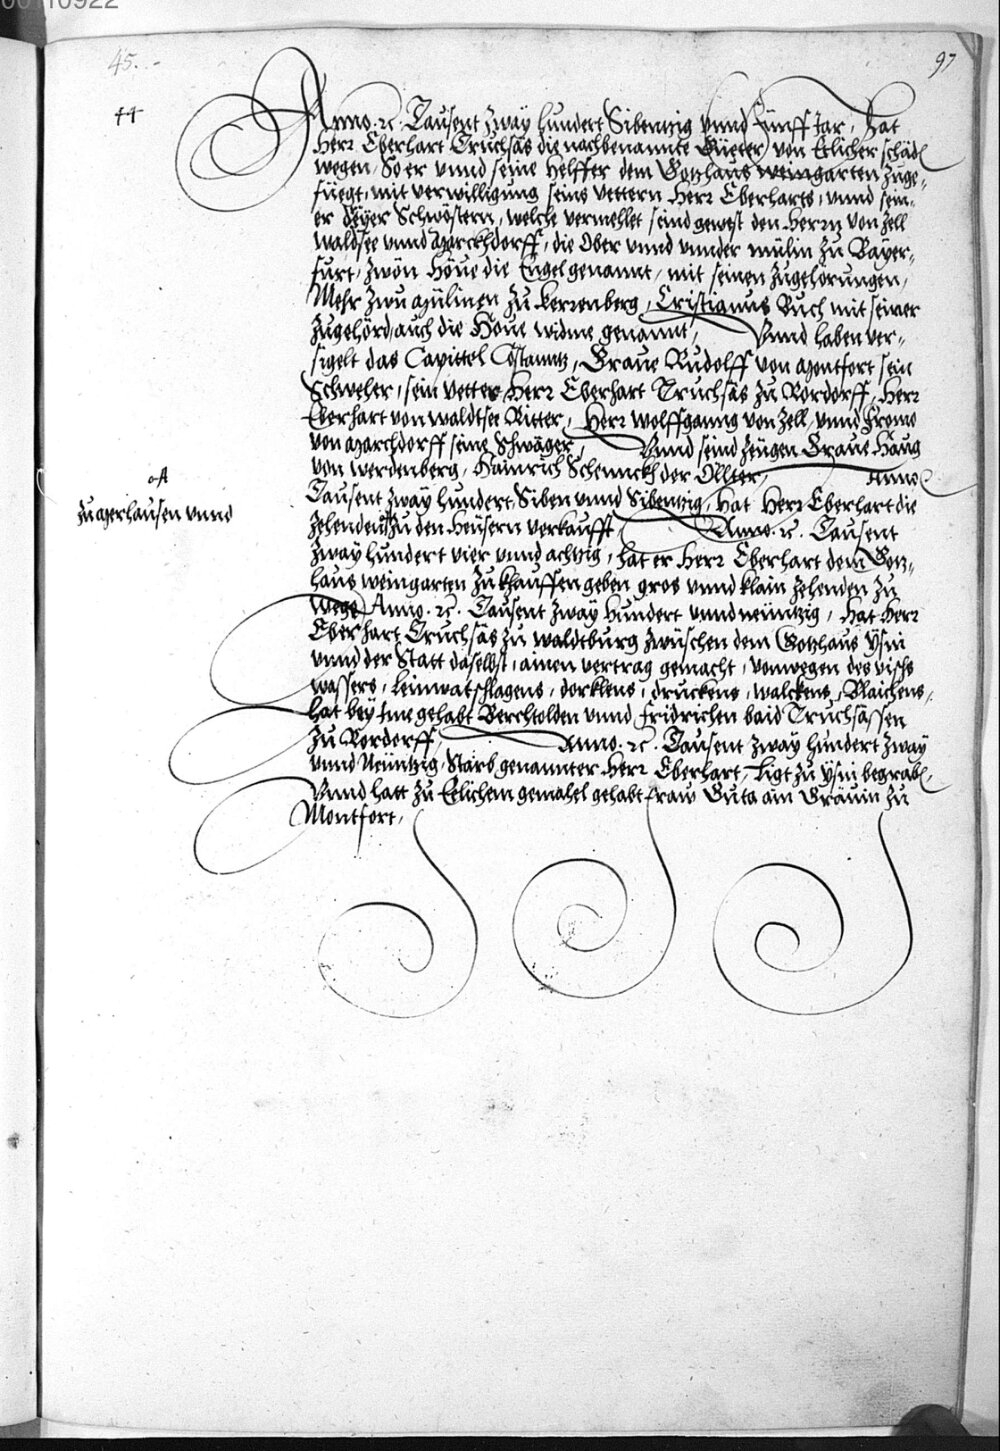 00110922
45.
97
44
Anno. rc. Tausent zway hundert Sibentzig vnnd Fünff Jar, hat
Herr Eberhart Truchsäs die nachbenannte Güeter, von Etlicher schäd
wegen, So er vnnd seine Helffer dem Gotzhaus weingarten zuge,,
füegt, mit verwilligung seins vettern Herr Eberharts, vnnd sein,,
er Schwöstern, welche vermehlet seind gewest den Herrn von Zell
waldsee vnnd Marckhdorff, die Ober vnnd vnnder mülin zu Bayer,,
furt, zwön Höue die Engel genannt, mit seinen zugehörungen,
Mehr zwu Mülinen zu kerrenberg, Cristianus Buch mit seiner
zugehörd, auch die Houe widme genannt, Vnnd haben ver,,
sigelt das Capittel Costanntz, Graue Rudolff von Montfort sein
Schweher, sein vetter Herr Eberhart Truchsäs zu Rordorff, Herr
Eberhart von waldtsee Ritter, Herr wolffganng von Zell, vnnd
von Marchdorff seine Schwäger, Vnnd seind zeugen Graue Haug
von werdenberg, Hainrich Schennckh der Ellter, Anno
Tausent zway hundert, Siben vnnd Sibentzig, hat Herr Eberhart die
zu Merhausen vnnd
zehenden zu den Heusern verkaufft, Anno. rc. Tausent
zway hundert vier vnnd achtzig, hat er Herr Eberhart dem Gotz,,
haus weingarten zu khauffen geben gros vnnd klain zehenden zu
wegs, Anno. rc. Tausent zway hundert vnnd neuntzig, hat Herr
Eberhart Truchsäs zu waldtburg zwüschen dem Gotzhaus Ysni
vnnd der Statt daselbst, ainen vertrag gemacht, vonwegen des visch
wassers, leinwatschlagens, druckens, walckens, Blaichens,
hat bey jme gehabt Berchtolden vnnd fridrichen baid Truchsässen
zu Rordorff, Anno. rc. Tausent zway hundert zway
vnnd Neüntzig, Starb genannter Herr Eberhart, ligt zu ysni begrab
Vnnd hatt zu Eelichem gemahel gehabt fraw Guta ain Gräuin zu
Montfort,